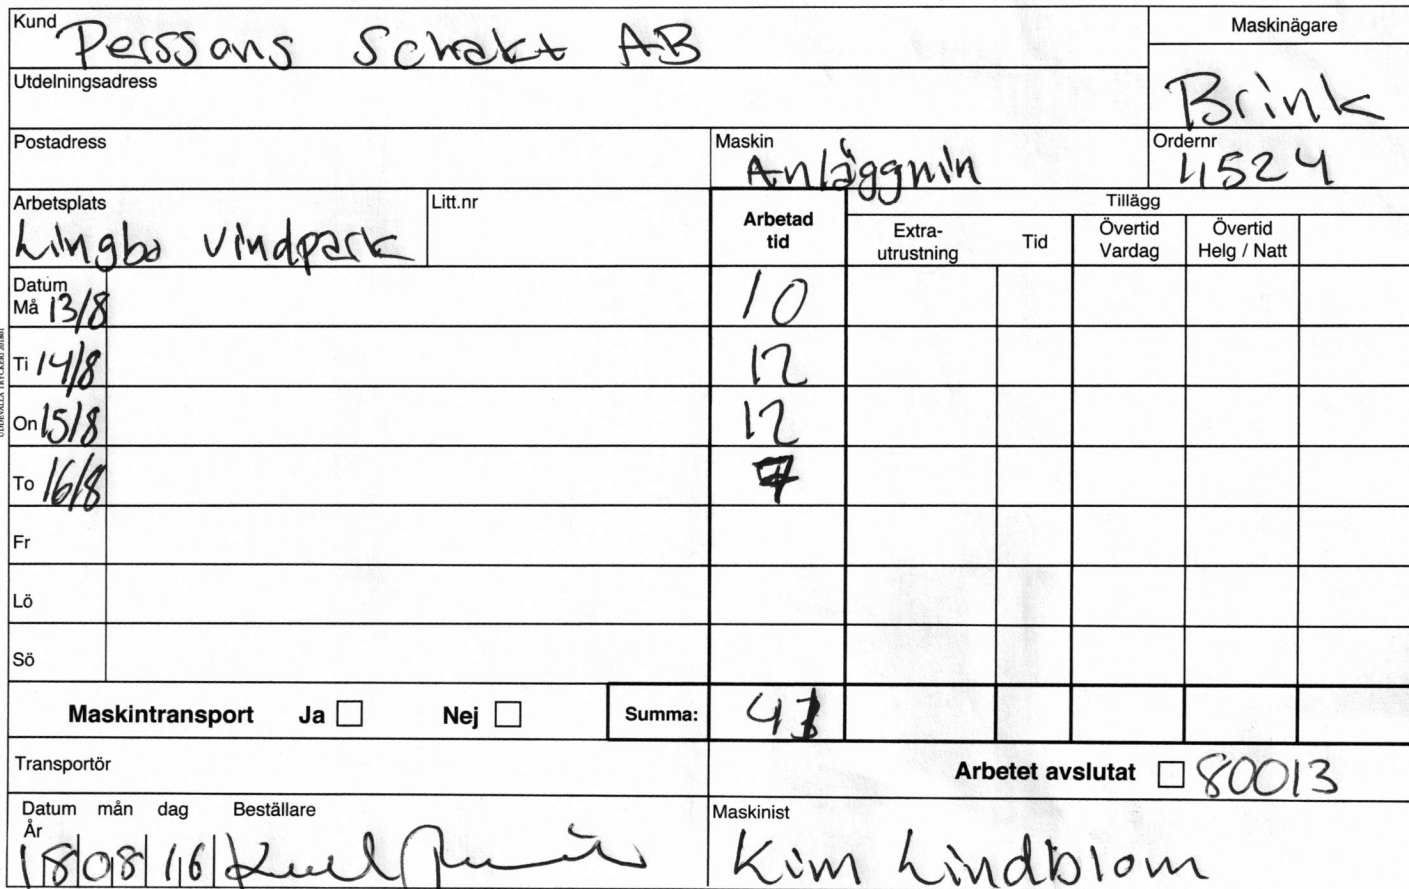 Kund Perssons Schakt AB
Maskinägare
Brink
Utdelningsadress
Postadress
Maskin Anläggnin
Ordernr 4524
Arbetsplats Lingbo vindpark
Litt.nr
Arbetad tid
Tillägg
Extra-utrustning
Tid
Övertid Vardag
Övertid Helg / Natt
Datum
Må 13/8 10
Ti 14/8 12
On 15/8 12
To 16/8 7
Fr
Lö
Sö
Maskintransport Ja Nej Summa: 41
Transportör
Arbetet avslutat 80013
Datum mån dag Beställare
År
18 08 16
Maskinist
Kim Lindblom